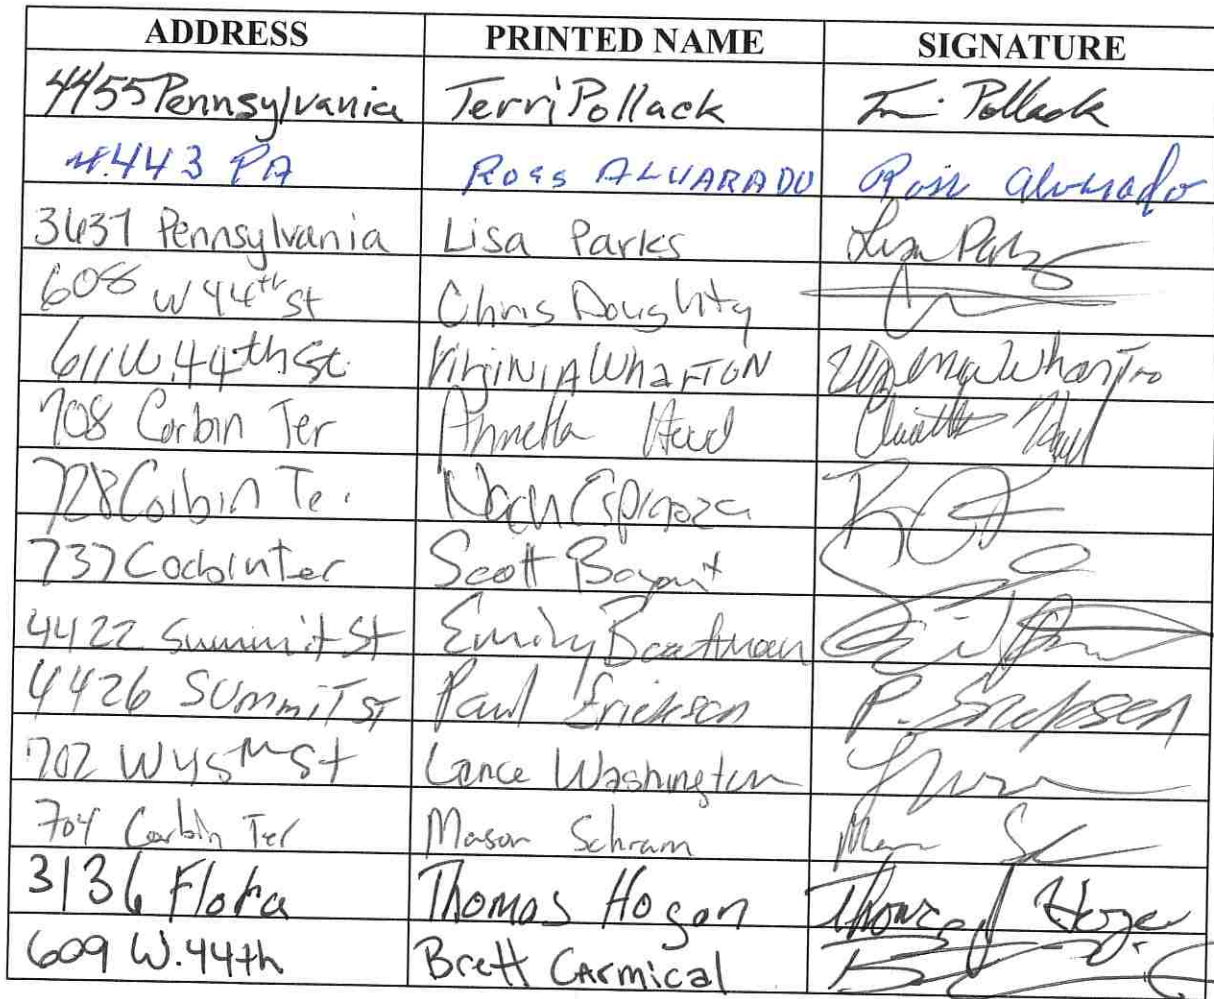 ADDRESS PRINTED NAME SIGNATURE
4455 Pennsylvania Terri Pollack Pollack
4443 PA ROSS ALVARADO Ross Alvarado
3637 Pennsylvania Lisa Parks Lisa Parks
608 W 44th St Chris Doughity
611 W. 44th St. Virginia Wharton Virginia Wharton
708 Corbin Ter Annetta Head
728 Corbin Te. Espinoza
737 Corbin ter Scott Bryant
4422 Summit St Emily Boatman
4426 Summit ST Paul Erickson P. Erickson
702 W 45th St Lance Washington
704 Corbin Ter Mason Schram
3136 Flora Thomas Hogan Thomas Hogan
609 W. 44th Brett Carmical